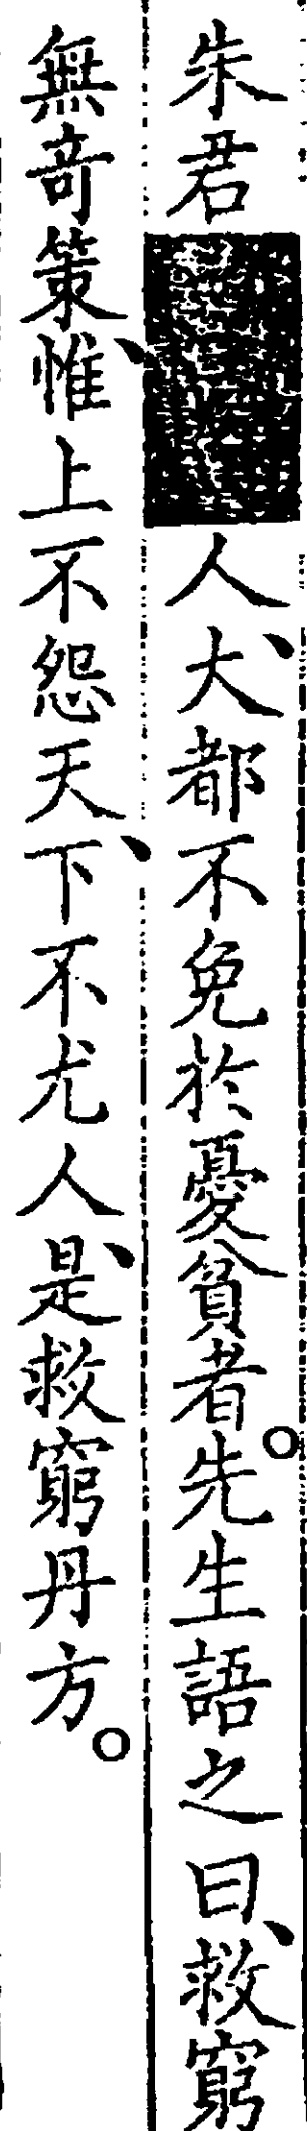 朱君人、大都不免於憂貧者。先生語之曰、救窮
無奇策、惟上不怨天、下不尤人、是救窮丹方。